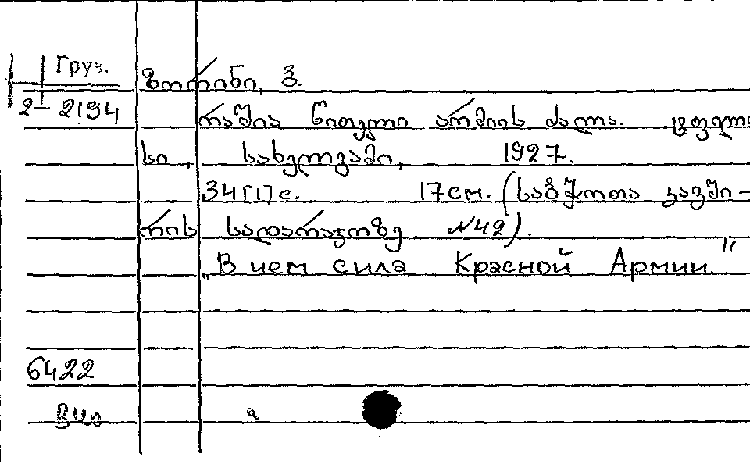 Груз.
2-2194
ზორინი, ვ.
რაშია წითელი არმიის ძალა. ტფილი
სი, სახელგამი, 1927.
34[1]с. 17см. (საბჭოთა კავში-
რის სადარაჯოზე №42).
„В чем сила Красной Армии"
6422